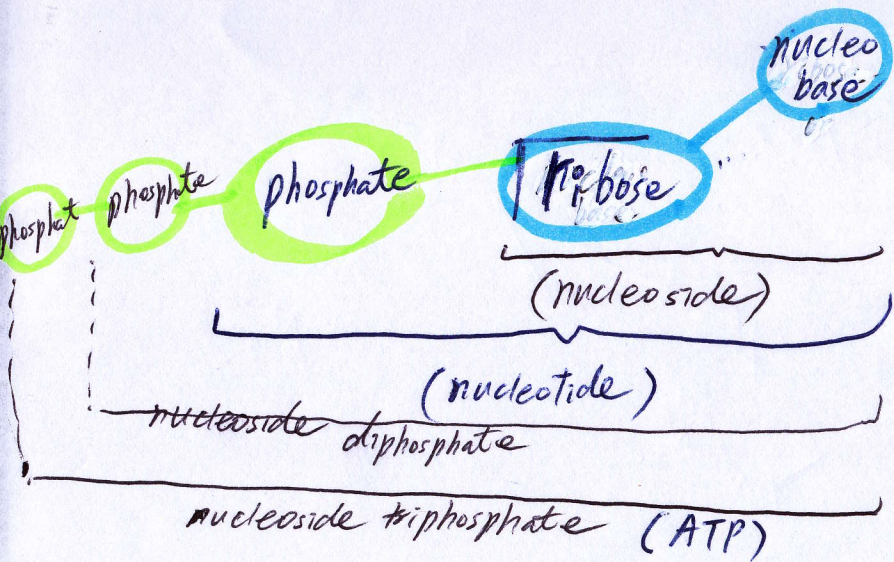 nucleo
base
phosphat
phosphate
phosphate
Ribose
(nucleoside)
(nucleotide)
nucleoside diphosphate
nucleoside triphosphate (ATP)